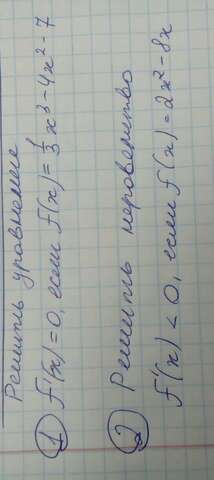 Решить уравнение
① f'(x)=0, если f(x)=1/3 x³-4x²-7
② Решить неравенство
f'(x) < 0, если f(x)=2x²-8x